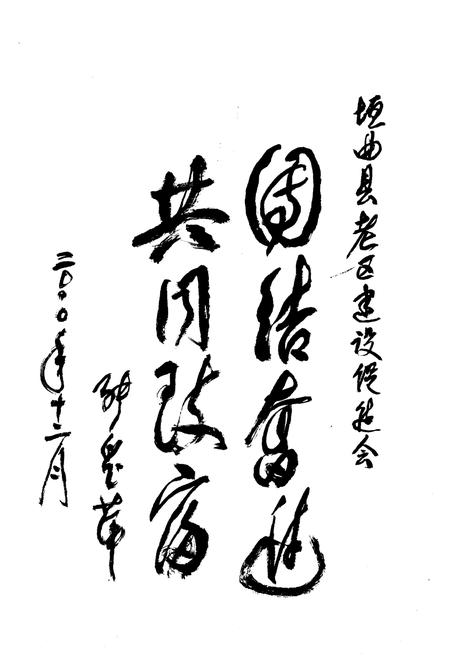 垣曲县老区建设促进会
团结奋进
共同致富
二〇〇〇年十二月